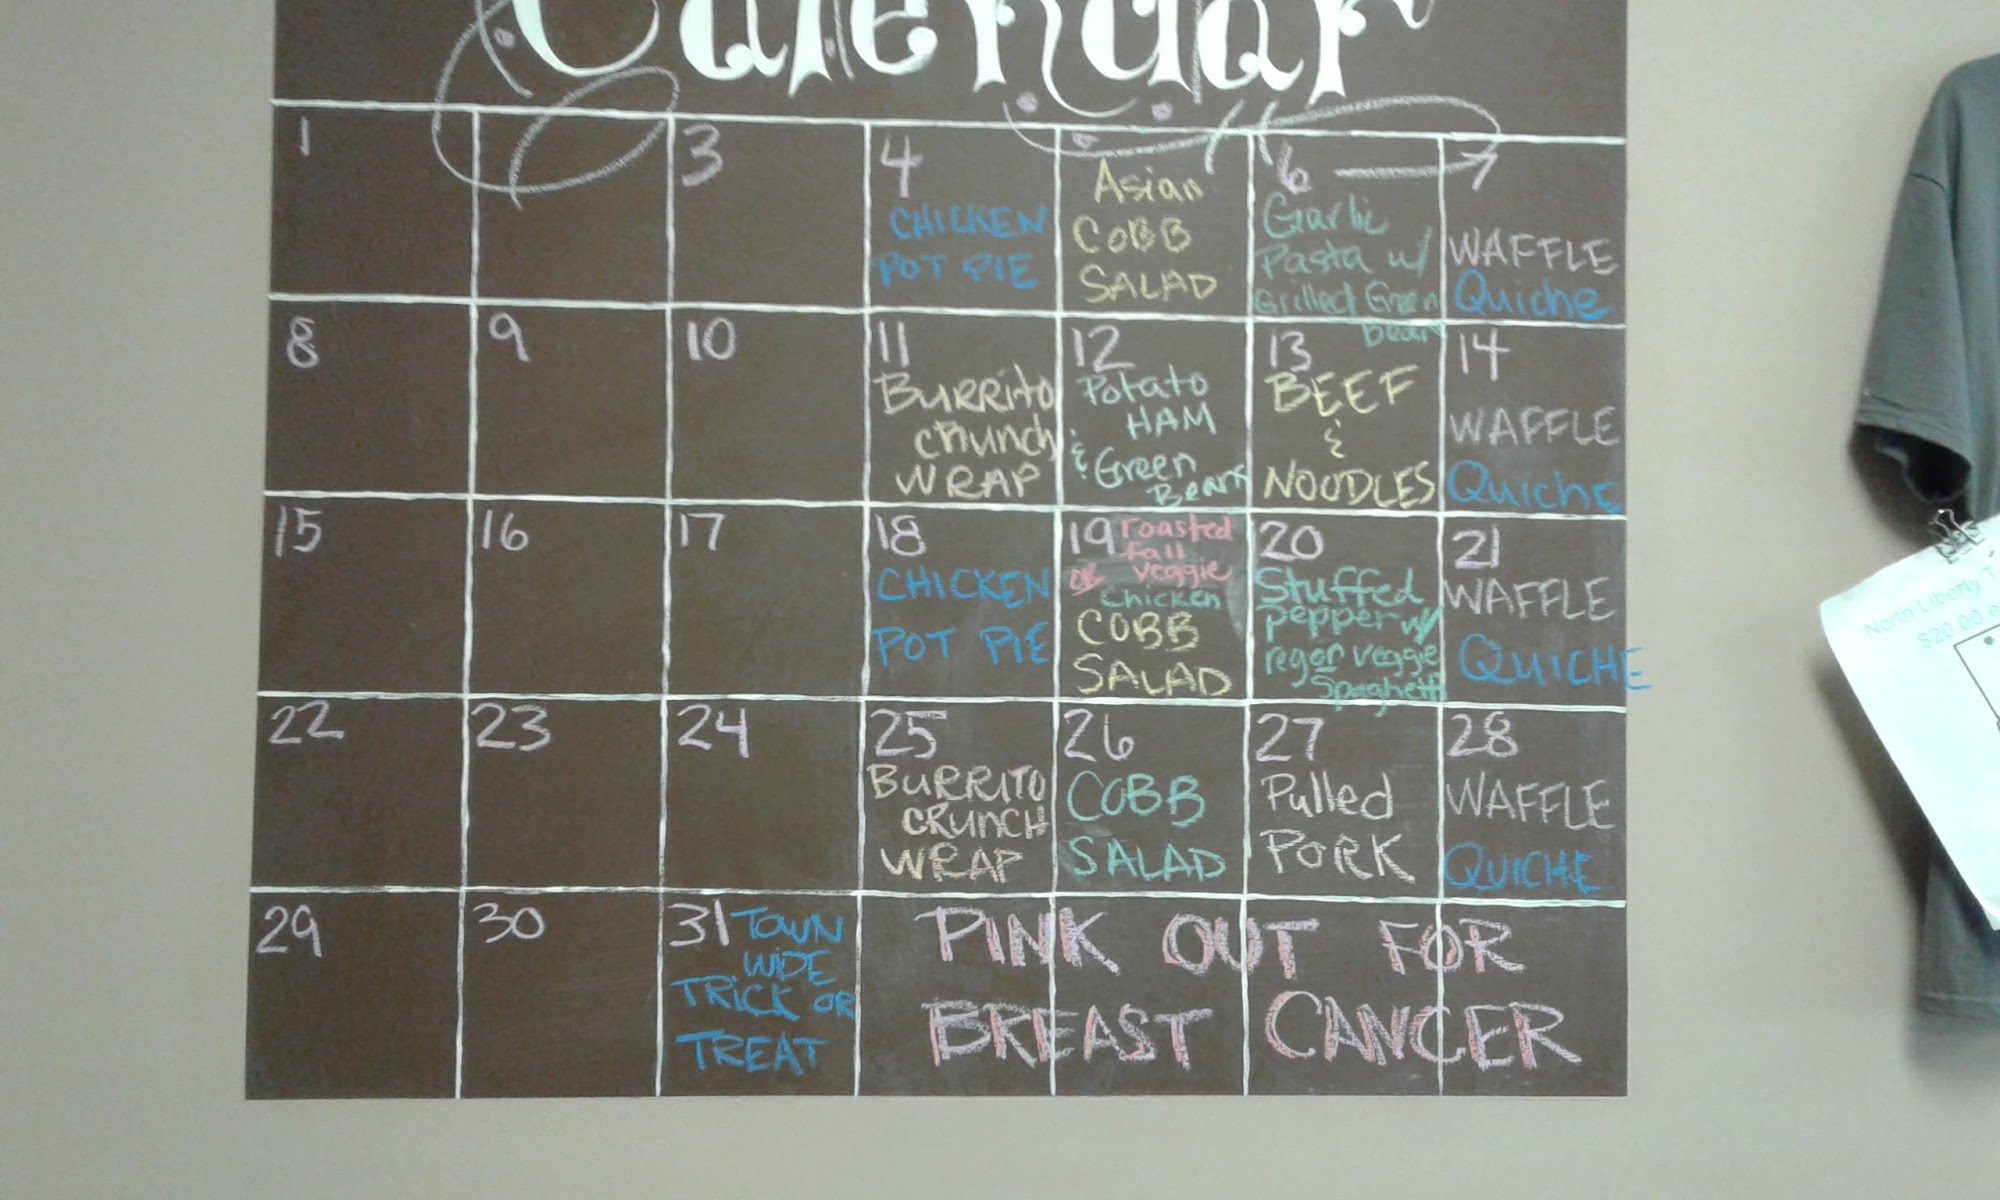 Calendar
1
3
4
CHICKEN
POT PIE
Asian
COBB
SALAD
6
Garlic
Pasta w/
Grilled Green
Bean
7
WAFFLE
Quiche
8
9
10
11
BURRito
CRunch
WRAP
12
Potato
HAM
& Green
Beans
13
BEEF
&
NOODLES
14
WAFFLE
Quiche
15
16
17
18
CHICKEN
POT PIE
19 roasted
fall
OR veggie
chicken
COBB
SALAD
20
Stuffed
pepper w/
reg or veggie
Spaghetti
21
WAFFLE
QUICHE
22
23
24
25
BURRITO
CRUNCH
WRAP
26
COBB
SALAD
27
Pulled
PORK
28
WAFFLE
QUICHE
29
30
31 TOWN
WIDE
TRICK OR
TREAT
PINK OUT FOR
BREAST CANCER
North Liberty
$20.00